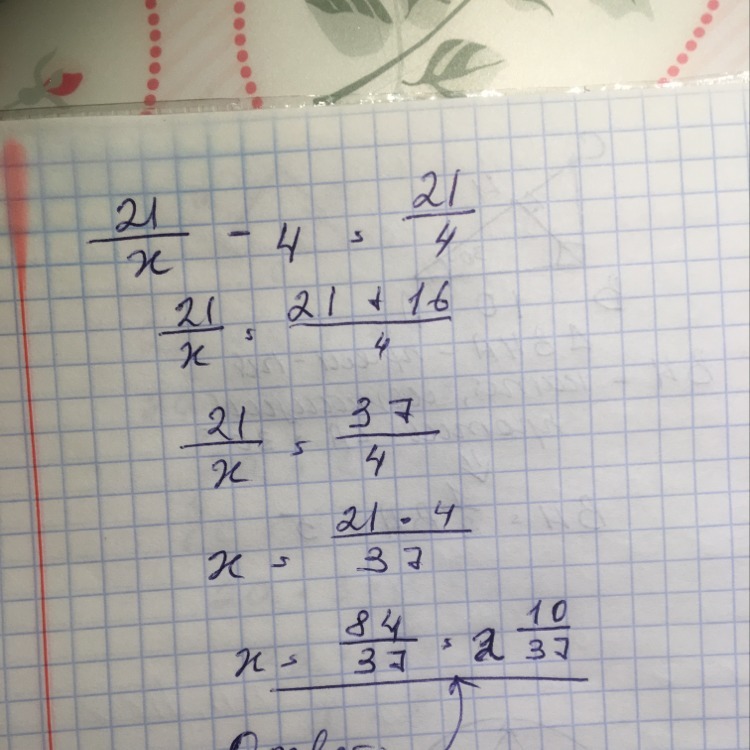 21/x - 4 = 21/4
21/x = (21 + 16)/4
21/x = 37/4
x = (21 · 4)/37
x = 84/37 = 2 10/37